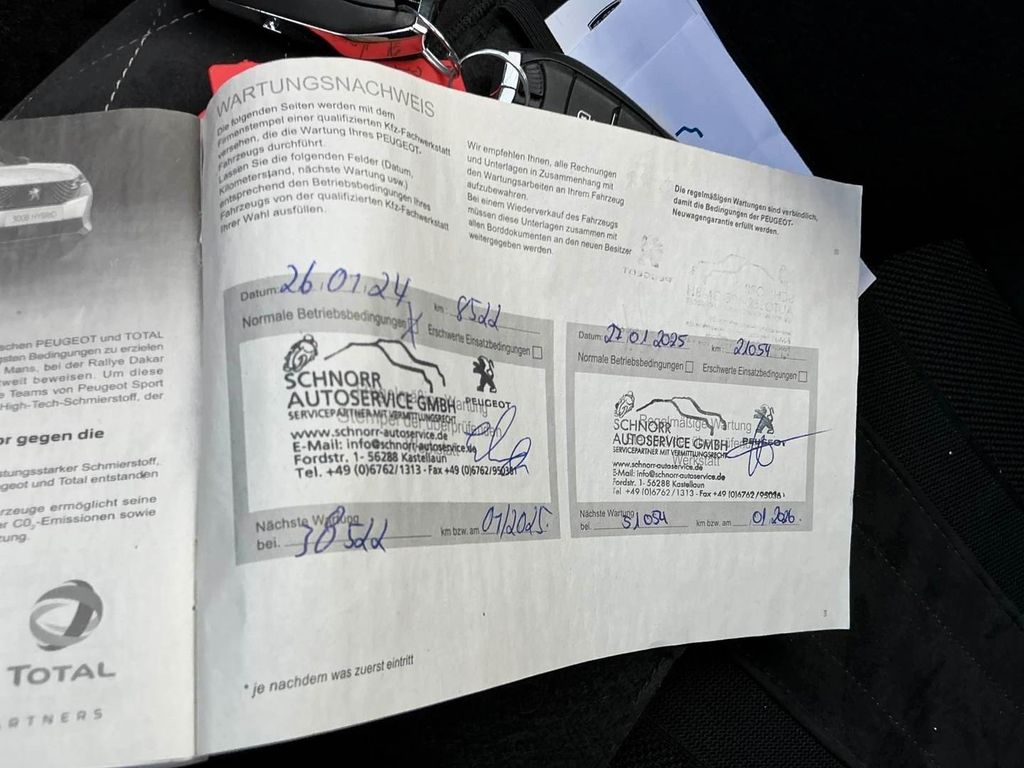 3008 HYBRID
schen PEUGEOT und TOTAL
gsten Bedingungen zu erzielen
Mans, bei der Rallye Dakar
weit beweisen. Um diese
e Teams von Peugeot Sport
High-Tech-Schmierstoff, der
or gegen die
stungsstarker Schmierstoff,
geot und Total entstanden
rzeuge ermöglicht seine
er CO₂-Emissionen sowie
zung.
TOTAL
ARTNERS
WARTUNGSNACHWEIS
Die folgenden Seiten werden mit dem
Firmenstempel einer qualifizierten Kfz-Fachwerkstatt
versehen, die die Wartung Ihres PEUGEOT-
Fahrzeugs durchführt.
Lassen Sie die folgenden Felder (Datum,
Kilometerstand, nächste Wartung usw.)
entsprechend den Betriebsbedingungen Ihres
Fahrzeugs von der qualifizierten Kfz-Fachwerkstatt
Ihrer Wahl ausfüllen.
Wir empfehlen Ihnen, alle Rechnungen
und Unterlagen in Zusammenhang mit
den Wartungsarbeiten an Ihrem Fahrzeug
aufzubewahren.
Bei einem Wiederverkauf des Fahrzeugs
müssen diese Unterlagen zusammen mit
allen Borddokumenten an den neuen Besitzer
weitergegeben werden.
Die regelmäßigen Wartungen sind verbindlich,
damit die Bedingungen der PEUGEOT-
Neuwagengarantie erfüllt werden.
Datum: 26.01.24 km: 8522
Normale Betriebsbedingungen X Erschwerte Einsatzbedingungen
SCHNORR
AUTOSERVICE GMBH PEUGEOT
SERVICEPARTNER MIT VERMITTLUNGSRECHT
www.schnorr-autoservice.de
E-Mail: info@schnorr-autoservice.de
Fordstr. 1 - 56288 Kastellaun
Tel. +49 (0)6762/1313 - Fax +49 (0)6762/950361
Regelmäßige Wartung
Stempel der überprüfenden
Nächste Wartung
bei. 38522 km bzw. am 01/2025.
Datum: 27.01.2025 km: 21054
Normale Betriebsbedingungen Erschwerte Einsatzbedingungen
SCHNORR
AUTOSERVICE GMBH PEUGEOT
SERVICEPARTNER MIT VERMITTLUNGSRECHT
www.schnorr-autoservice.de
E-Mail: info@schnorr-autoservice.de
Fordstr. 1 - 56288 Kastellaun
Tel. +49 (0)6762/1313 - Fax +49 (0)6762/950361
Regelmäßige Wartung
Werkstatt
Nächste Wartung
bei. 51054 km bzw. am 01.2026.
* je nachdem was zuerst eintritt